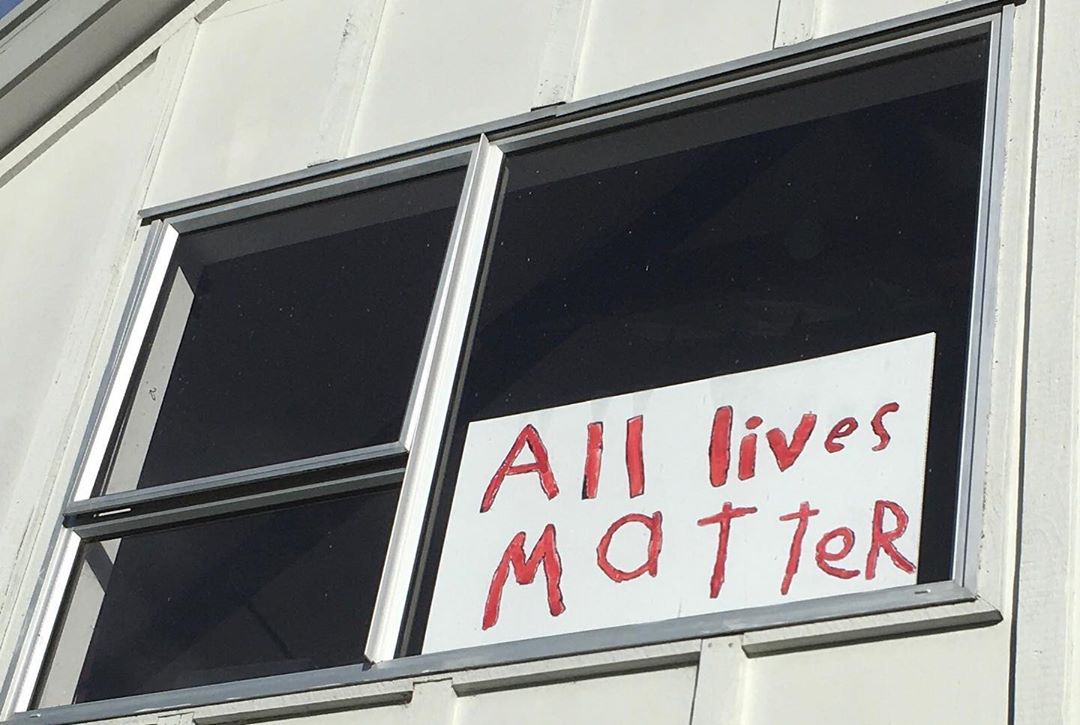 All lives
MaTTeR